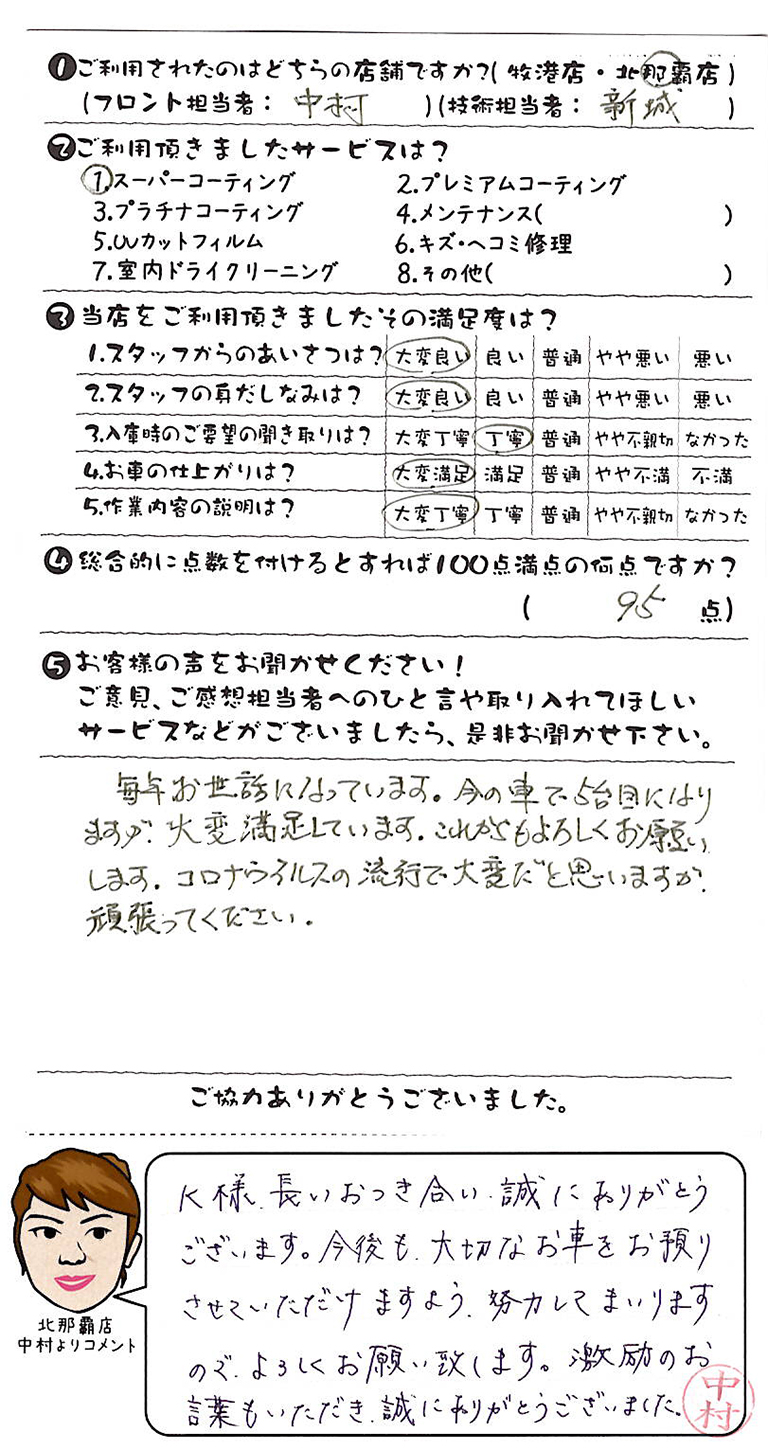 ❶ご利用されたのはどちらの店舗ですか?(牧港店・北那覇店)
(フロント担当者: 中村 )(技術担当者: 新城 )
❷ご利用頂きましたサービスは?
1.スーパーコーティング 2.プレミアムコーティング
3.プラチナコーティング 4.メンテナンス( )
5.UVカットフィルム 6.キズ・ヘコミ修理
7.室内ドライクリーニング 8.その他( )
❸当店をご利用頂きましたその満足度は?
1.スタッフからのあいさつは? 大変良い 良い 普通 やや悪い 悪い
2.スタッフの身だしなみは? 大変良い 良い 普通 やや悪い 悪い
3.入庫時のご要望の聞き取りは? 大変丁寧 丁寧 普通 やや不親切 なかった
4.お車の仕上がりは? 大変満足 満足 普通 やや不満 不満
5.作業内容の説明は? 大変丁寧 丁寧 普通 やや不親切 なかった
❹総合的に点数を付けるとすれば100点満点の何点ですか?
( 95 点)
❺お客様の声をお聞かせください!
ご意見、ご感想担当者へのひと言や取り入れてほしい
サービスなどがございましたら、是非お聞かせ下さい。
毎年お世話になっています。今の車で5台目になり
ますが、大変満足しています。これからもよろしくお願い
します。コロナウイルスの流行で大変だと思いますが、
頑張ってください。
ご協力ありがとうございました。
K様、長いおつき合い、誠にありがとう
ございます。今後も、大切なお車をお預り
させていただけますよう、努力してまいります
ので、よろしくお願い致します。激励のお
言葉もいただき、誠にありがとうございました。
中村
北那覇店
中村よりコメント